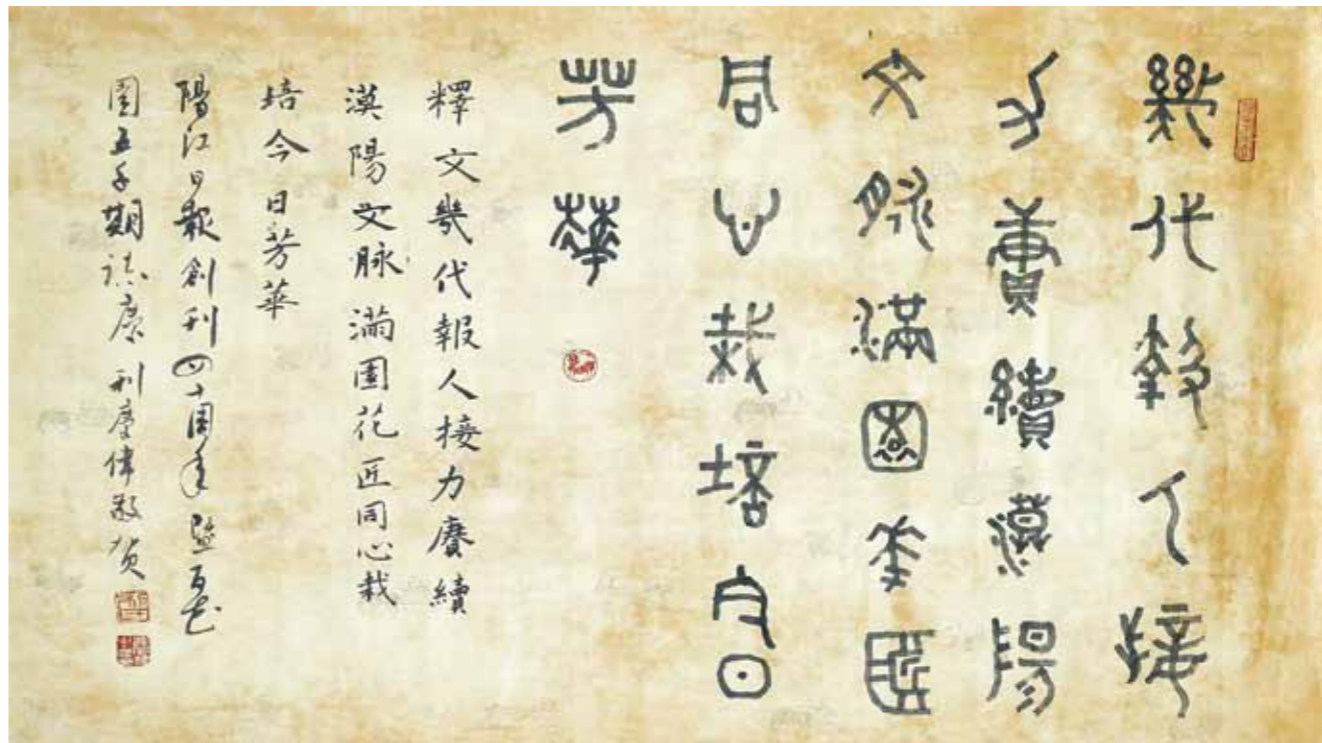 幾代報人接
力賡續漠陽
文脉滿園花匠
同心栽培今日
芳華
釋文幾代報人接力賡續
漠陽文脉滿園花匠同心栽
培今日芳華
陽江日報創刊四十周年暨百花
園五千期誌慶 利慶偉敬賀